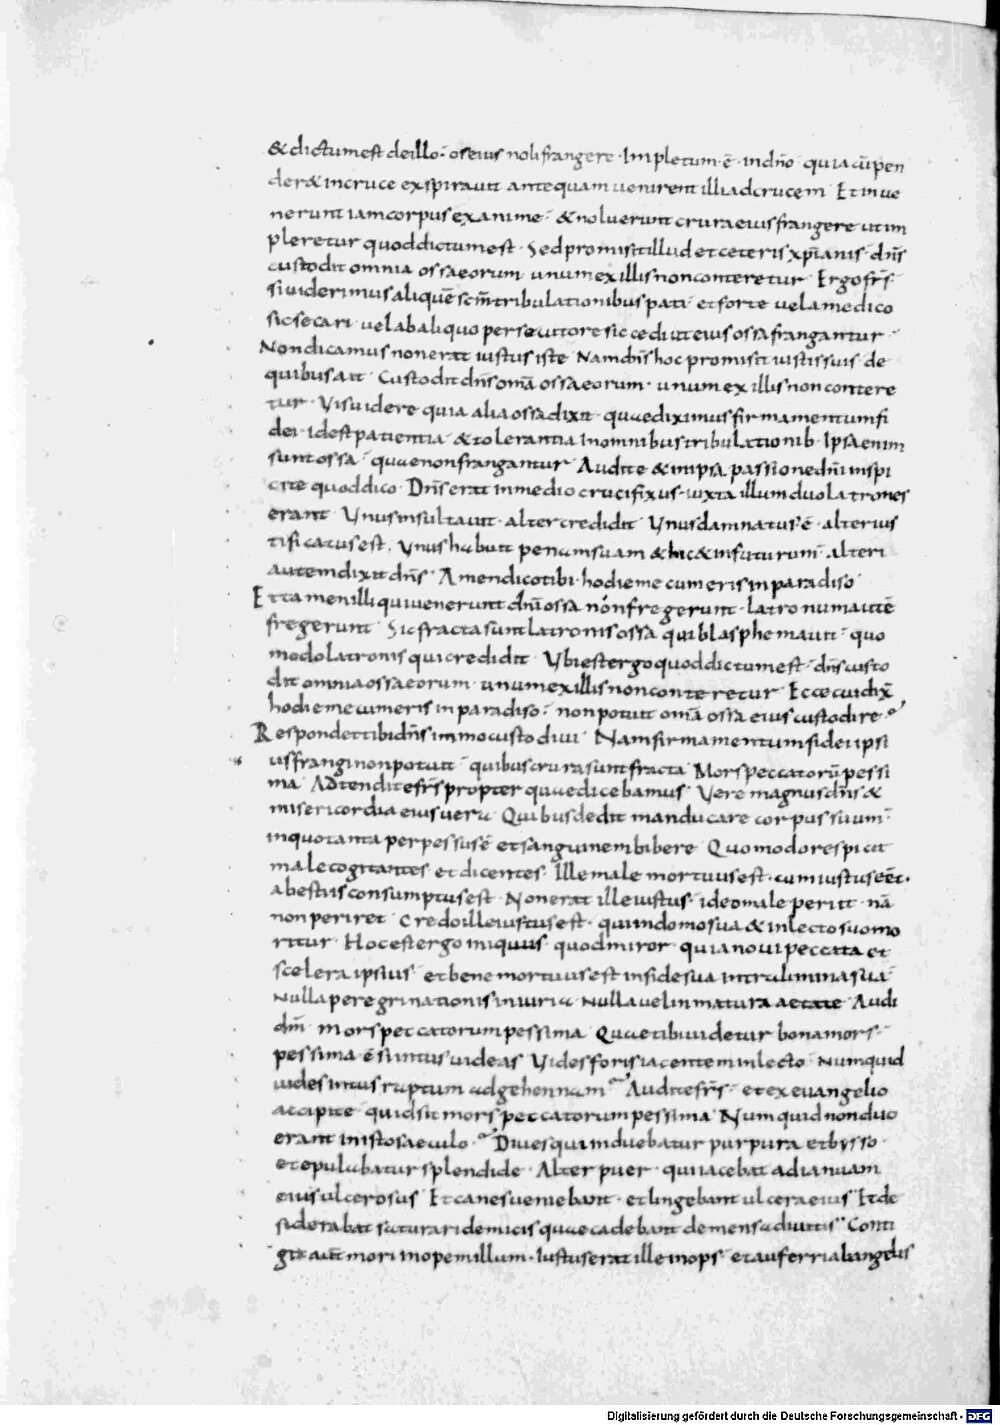 & dictum est de illo · os eius noli frangere · Impletum ē · in dño · quia cū pen
der& in cruce exspirauit antequam uenirent illi ad crucem · Et inue
nerunt iam corpus exanime · & noluerunt crura eius frangere ut im
pleretur quod dictum est · Sed promisit illud et ceteris xp̄ianis · dñs
custodit omnia ossa eorum unum ex illis non conteretur · Ergo frs̄ ·
si uiderimus aliquē scm̄ tribulationibus pati · et forte uel a medico
sic secari · uel ab aliquo persecutore sic cedi ut eius ossa frangantur ·
Non dicamus non erat iustus iste Nam dñs hoc promisit iustis suis de
quibus ait Custodit dñs omā ossa eorum · unum ex illis non contere
tur · Vis uidere quia alia ossa dixit · quae diximus firmamentum fi
dei · id est patientia & tolerantia In omnibus tribulationib · Ipsa enim
sunt ossa · quae non frangantur Audite & in ipsa passione dñi inspi
cite quod dico · Dñs erat in medio crucifixus · iuxta illum duo latrones
erant Vnus insultauit · alter credidit Vnus damnatus ē · alter ius
tificatus est · Vnus habuit penam suam & hic & in futurum · alteri
autem dixit dñs · Amen dico tibi · hodie mecum eris in paradiso
Et tamen illi qui uenerunt dñi ossa non fregerunt · latronum autē
fregerunt Sic fracta sunt latronis ossa qui blasphemauit · quo
modo latronis qui credidit Vbi est ergo quod dictum est · dñs custo
dit omnia ossa eorum · unum ex illis non conteretur Ecce cui dix̄
hodie mecum eris in paradiso · non potuit omā ossa eius custodire ·
Respondet tibi dñs immo custodiui Nam firmamentum fidei ipsi
us frangi non potuit · quibus crura sunt fracta Mors peccatorū pessi
ma Adtendite frs̄ propter quae dicebamus · Vere magnus dñs &
misericordia eius uera Quibus dedit manducare corpus suum ·
in quo tanta perpessus ē et sanguinem bibere Quomodo respicit
male cogitantes et dicentes · Ille male mortuus est · cum iustus eēt ·
a bestiis consumptus est Non erat ille iustus · ideo male periit · nā
non periret Credo ille iustus est · qui in domo sua & in lecto suo mo
ritur · Hoc est ergo iniquus · quod miror · quia noui peccata et
scelera ipsius · et bene mortuus est in fide sua intra limina sua
Nulla peregrinationis iniuria Nulla uel in matura aetate Audi
dm̄ mors peccatorum pessima Quae tibi uidetur bona mors ·
pessima ē si intus uideas Vides foris iacentem in lecto · Numquid
uides intus raptum ad gehennam · Audite frs̄ · et ex euangelio
accipite · quid sit mors peccatorum pessima Numquid non duo
erant in isto saeculo · Diues qui induebatur purpura et bysso ·
et epulabatur splendide · Alter puer · qui iacebat ad ianuam
eius ulcerosus Et canes ueniebant · et lingebant ulcera eius Et de
siderabat saturari de micis quae cadebant de mensa diuitis Conti
git aut̄ mori inopem illum · Iustus erat ille inops et auferri ab angelis
Digitalisierung gefördert durch die Deutsche Forschungsgemeinschaft - DFG